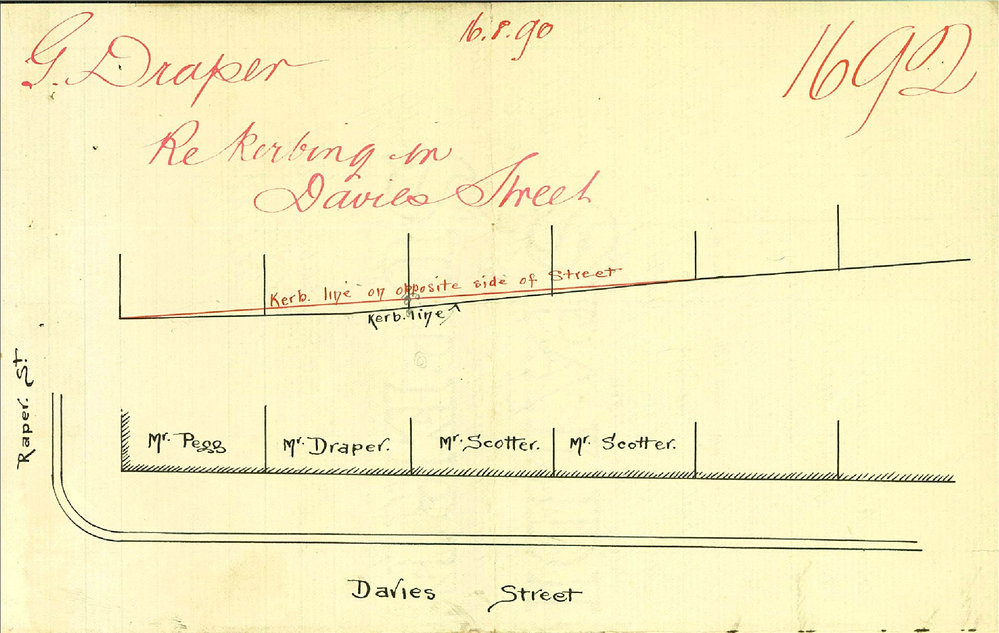 16.8.90
G. Draper
1692
Re Kerbing in
Davies Street
Kerb. line on opposite side of Street
Kerb. line
Raper. St.
Mr. Pegg
Mr. Draper.
Mr. Scotter.
Mr. Scotter.
Davies Street